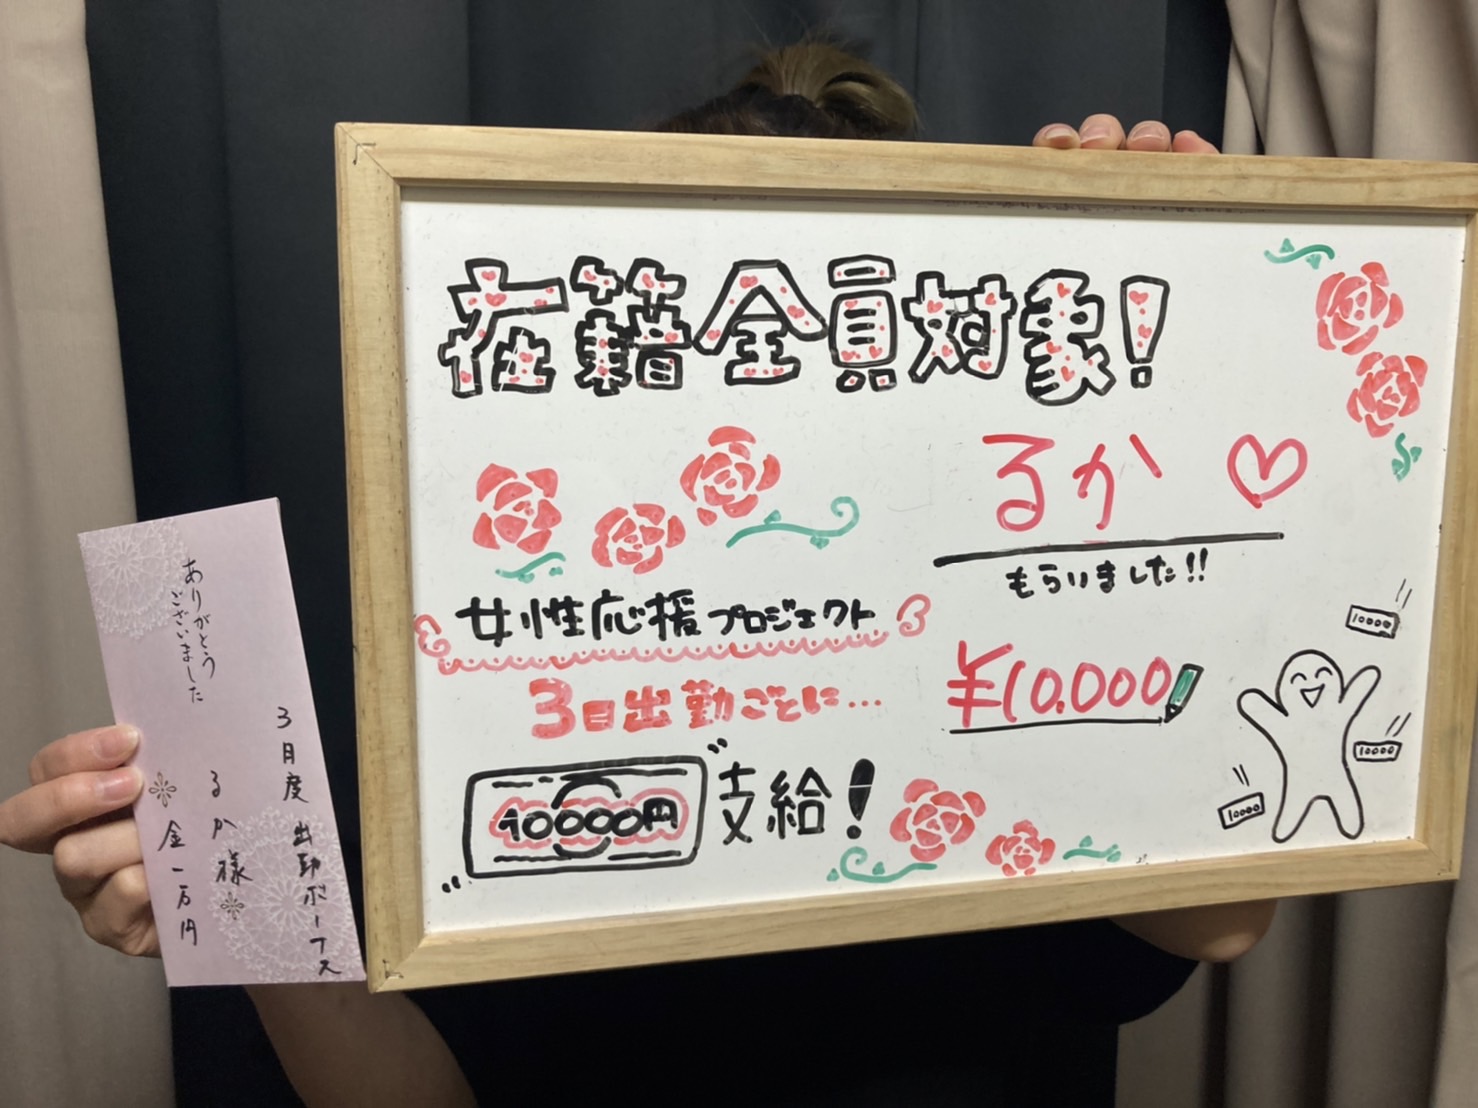 在籍全員対象!
るか♡
もらいました!!
女性応援プロジェクト
3日出勤ごとに…
10000円
支給!
¥10.000
10000
10000
10000
ありがとう
ございました
3月度 出勤ボーナス
るか様
金一万円